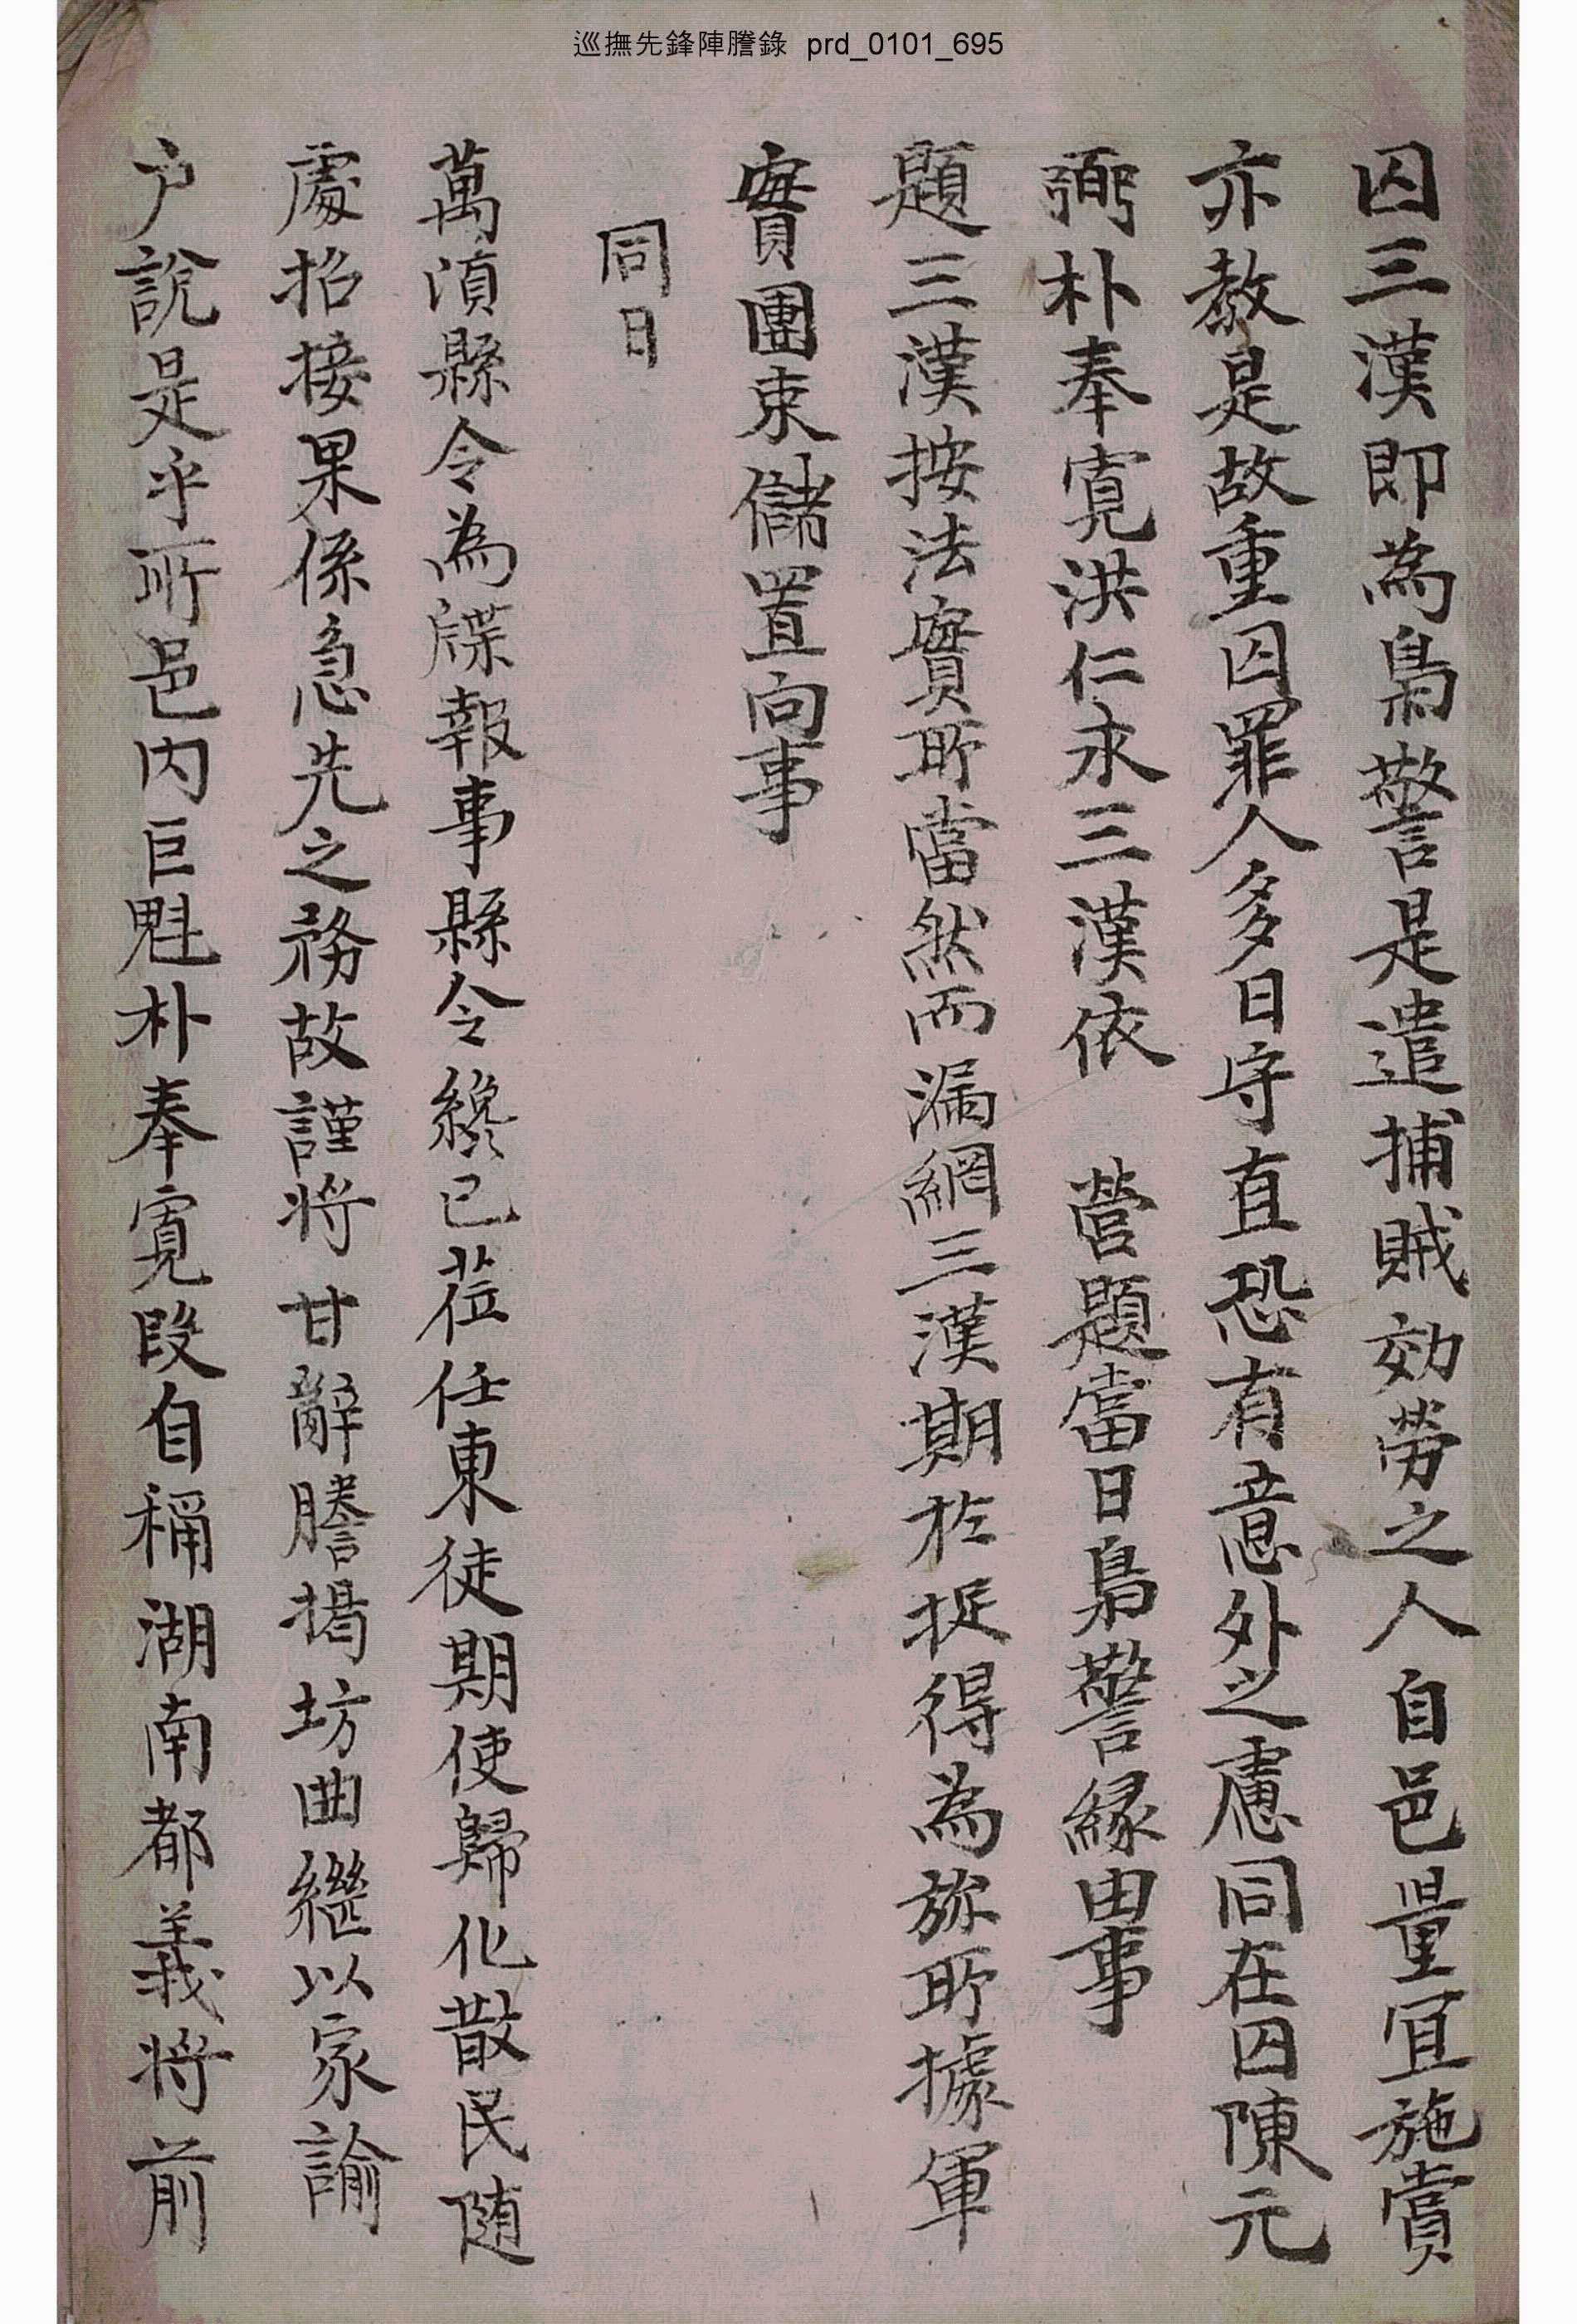 巡撫先鋒陣謄錄 prd_0101_695
囚三漢即為梟警是遣捕賊效勞之人自邑量宜施賞
亦教是故重囚罪人多日守直恐有意外之慮同在囚陳元
弼朴奉寬洪仁永三漢依 營題當日梟警緣由事
題三漢按法實所當然而漏網三漢期於捉得為旀所據軍
實團束儲置向事
同日
萬湏縣令為牒報事縣令纔已莅任東徒期使歸化散民随
處招接果係急先之務故謹將甘辭謄揭坊曲繼以家諭
户說是乎所邑內巨魁朴奉寬段自稱湖南都義將前